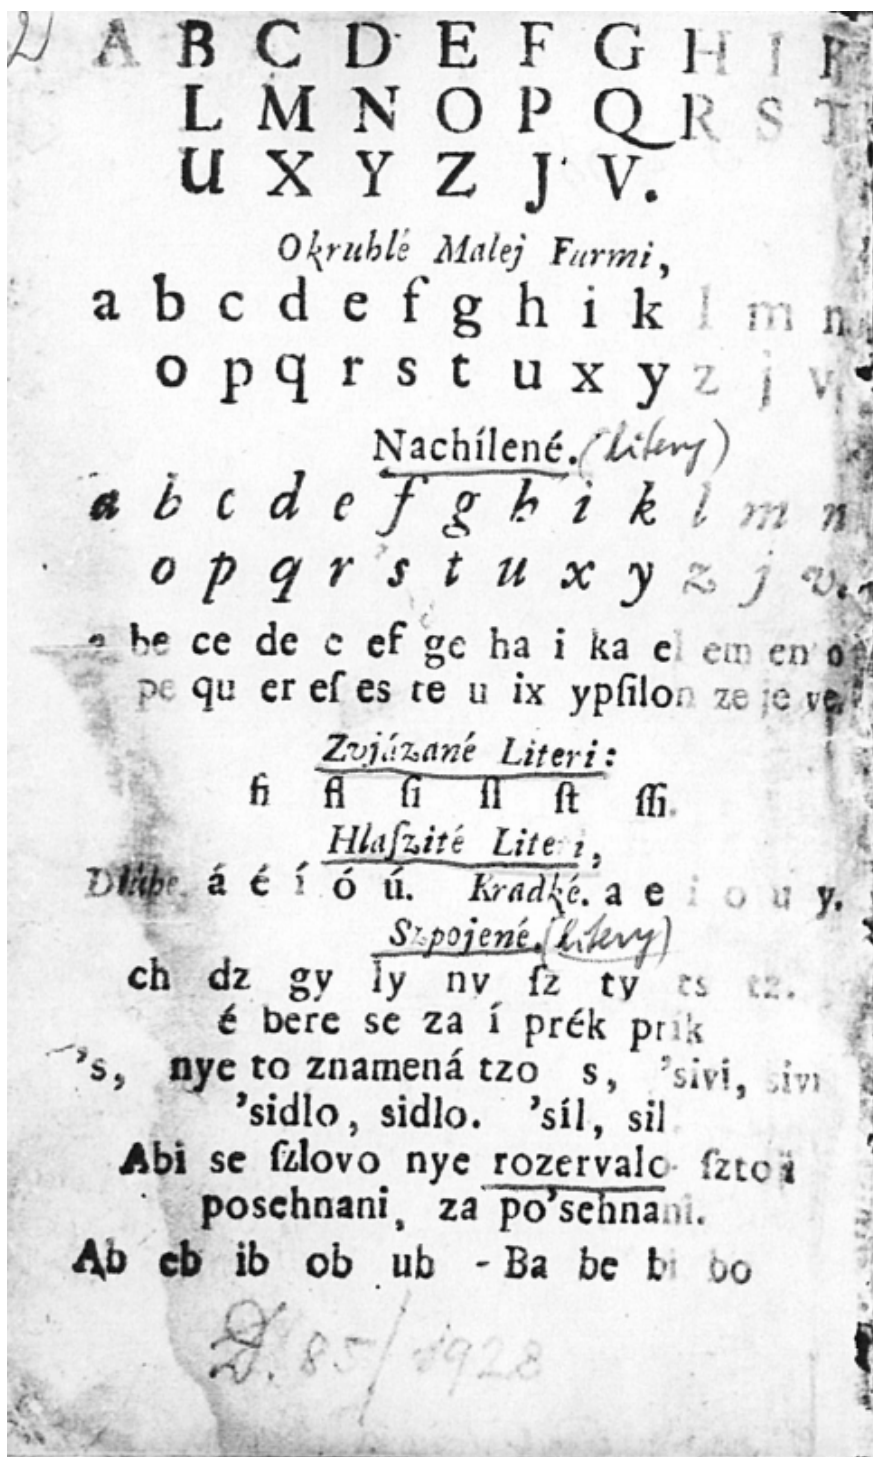 A B C D E F G H I K
L M N O P Q R S T
U X Y Z J V.
Okruhlé Malej Furmi,
a b c d e f g h i k l m n
o p q r s t u x y z j v
Nachílené. (litery)
a b c d e f g h i k l m n
o p q r s t u x y z j v.
a be ce de e ef ge ha i ka el em en o
pe qu er eſ es te u ix ypſilon ze je ve.
Zvjázané Literi:
fi fl ſi ſl ſt ſſi.
Hlaſzité Literi,
Dlúhe, á é í ó ú. Kradké. a e i o u y.
Szpojené. (litery)
ch dz gy ly ny ſz ty ts tz.
é bere se za í prék prík
's, nye to znamená tzo s, 'sivi, sivi
'sidlo, sidlo. 'síl, sil
Abi se ſzlovo nye rozervalo ſztoji
posehnani, za po'sehnani.
Ab eb ib ob ub - Ba be bi bo
D. 85/1928